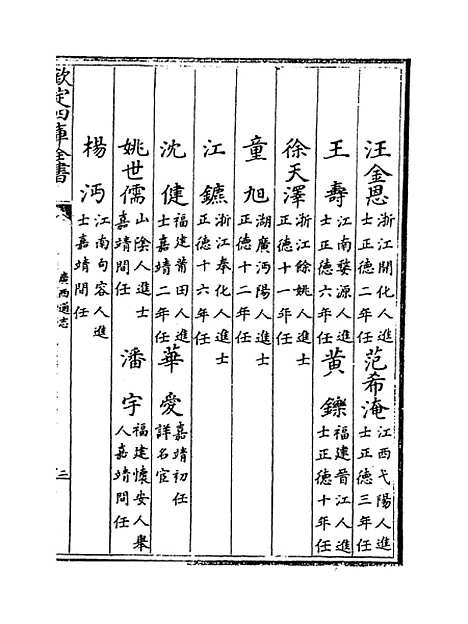 汪金恩 浙江開化人進士正德二年任 范希淹 江西弋陽人進士正德三年任
王壽 江南婺源人進士正德六年任 黄鑠 福建晉江人進士正德十年任
徐天澤 浙江餘姚人進士正德十一年任
童旭 湖廣沔陽人進士正德十二年任
江鑣 浙江奉化人進士正德十六年任
沈健 福建莆田人進士嘉靖二年任 華愛 嘉靖初任詳名宦
姚世儒 山陰人進士嘉靖間任 潘宇 福建懷安人舉人嘉靖間任
楊沔 江南句容人進士嘉靖間任
欽定四庫全書
廣西通志
三